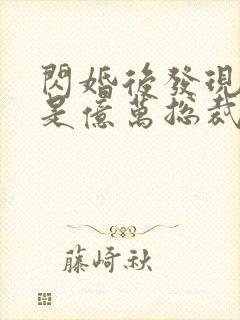 閃婚後發現
是億萬總裁
藤崎秋